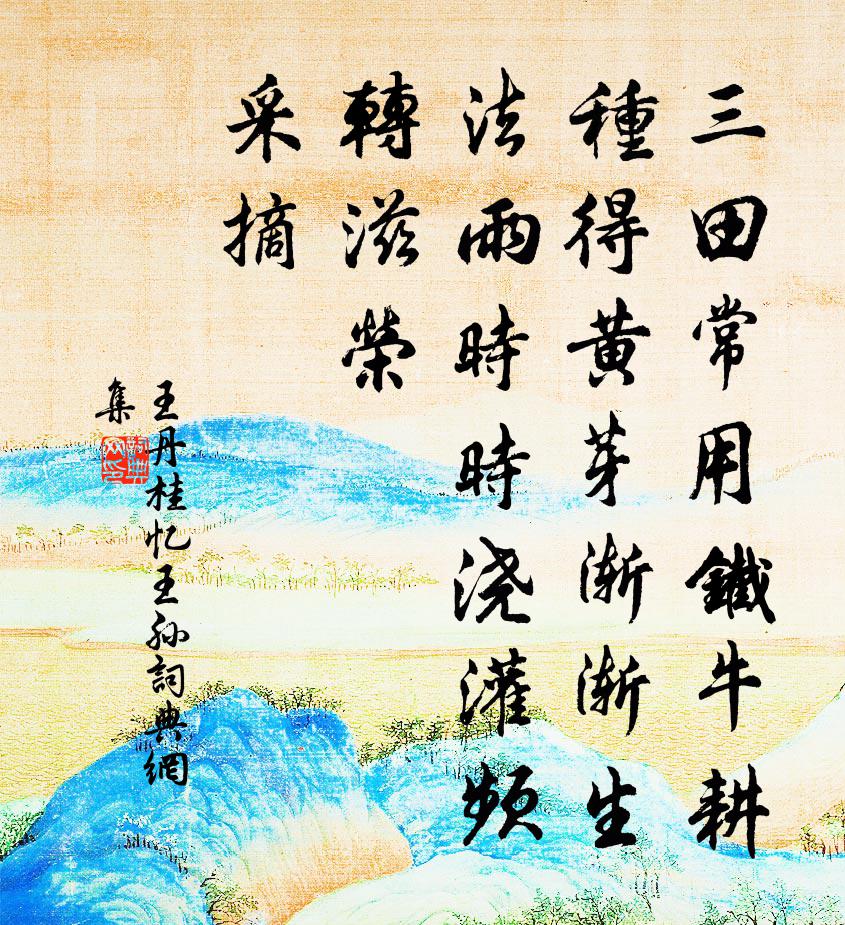 三田常用鐵牛耕
種得黄芽渐渐生
法雨時時浇灌频
轉滋榮
采摘
王丹桂忆王孙詞典網
集